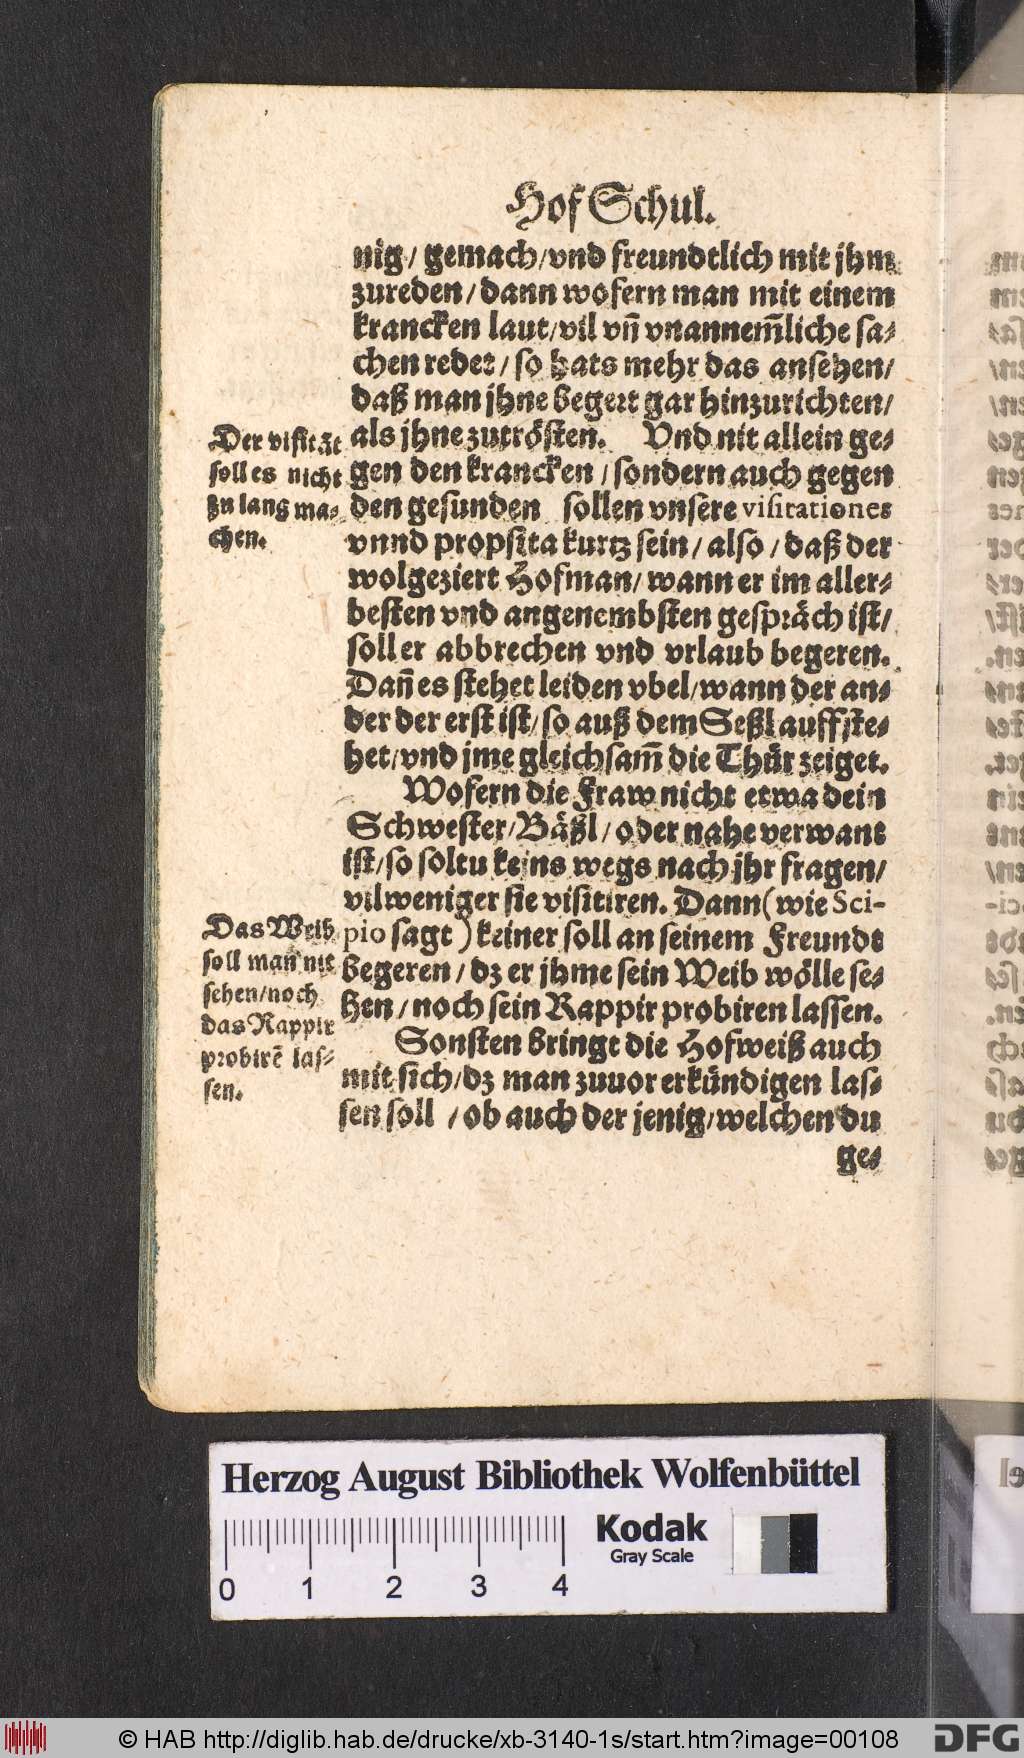 Hof Schul.
nig/ gemach/vnd freundtlich mit jhm
zureden/ dann wofern man mit einem
krancken laut/vil vñ vnannem̃liche sa-
chen redet/ so hats mehr das ansehen/
daß man jhne begert gar hinzurichten/
als jhne zutrösten. Vnd nit allein ge-
gen den krancken/ sondern auch gegen
den gesunden sollen vnsere visitationes
vnnd propsita kurtz sein/ also/ daß der
wolgeziert Hofman/ wann er im aller-
besten vnd angenembsten gespräch ist/
soll er abbrechen vnd vrlaub begeren.
Dañ es stehet leiden vbel/wann der an-
der der erst ist/ so auß dem Seßl auffste-
het/vnd jme gleichsam̃ die Thür zeiget.
Wofern die Fraw nicht etwa dein
Schwester/Bäßl/ oder nahe verwant
ist/so soltu keins wegs nach jhr fragen/
vil weniger sie visitiren. Dann (wie Sci-
pio sagt) keiner soll an seinem Freundt
begeren/ dz er jhme sein Weib wölle se-
hen/ noch sein Rappir probiren lassen.
Sonsten bringt die Hofweiß auch
mit sich/dz man zuuor erkündigen las-
sen soll/ ob auch der jenig/welchen du
ge-
Der visitãt
soll es nicht
zu lang ma-
chen.
Das Weib
soll man nit
sehen/noch
das Rappir
probirẽ las-
sen.
Herzog August Bibliothek Wolfenbüttel
0 1 2 3 4
Kodak
Gray Scale
© HAB http://diglib.hab.de/drucke/xb-3140-1s/start.htm?image=00108
DFG